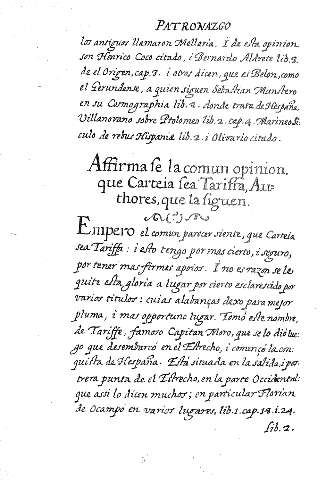 PATRONAZGO
los antiguos llamaron Mellaria. I de esta opinion
son Henrico Coco citado, i Bernardo Aldrete lib.3.
de el Origen, cap.3. i otros dicen, que es Belon, como
el Gerundense, a quien siguen Sebastian Munstero
en su Cosmographia lib.2. donde trata de Hespaña,
Villanovano sobre Ptolomeo lib.2. cap.4. Marineo Si-
culo de rebus Hispaniæ lib.2. i Olivario citado.
Affirmase la comun opinion,
que Carteia sea Tariffa, Au-
thores, que la siguen.
Empero el comun parecer siente, que Carteia
sea Tariffa: i esto tengo por mas cierto, i seguro,
por tener mas firmes apoios. I no es razon se le
quite esta gloria a lugar por cierto esclarecido por
varios titulos: cuias alabanças dexo para mejor
pluma, i mas opportuno lugar. Tomó este nombre,
de Tariffe, famoso Capitan Moro, que se lo dió lue-
go que desembarcó en el Estrecho, i començó la con-
quista de Hespaña. Està situada en la salida, i pos-
trera punta de el Estrecho, en la parte Occidental:
que assi lo dicen muchos; en particular Florian
de Ocampo en varios lugares, lib.1. cap.18. i 24.
lib.2.